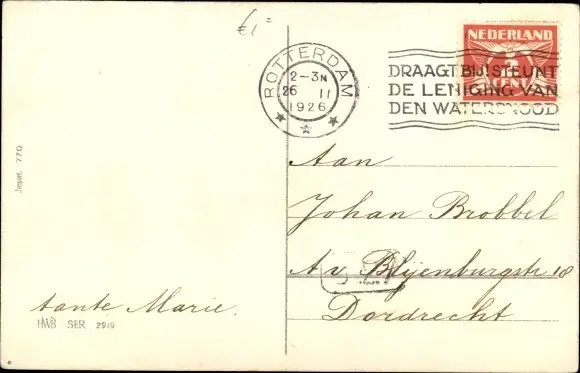 €1=
NEDERLAND
5
CENT
ROTTERDAM
2-3N
26 II
1926
DRAAGT BIJ! STEUNT
DE LENIGING VAN
DEN WATERSNOOD
Aan
Johan Brobbel
A v Blijenburgstr 18
Dordrecht
tante Marie.
HWB SER 2919
Import. 770